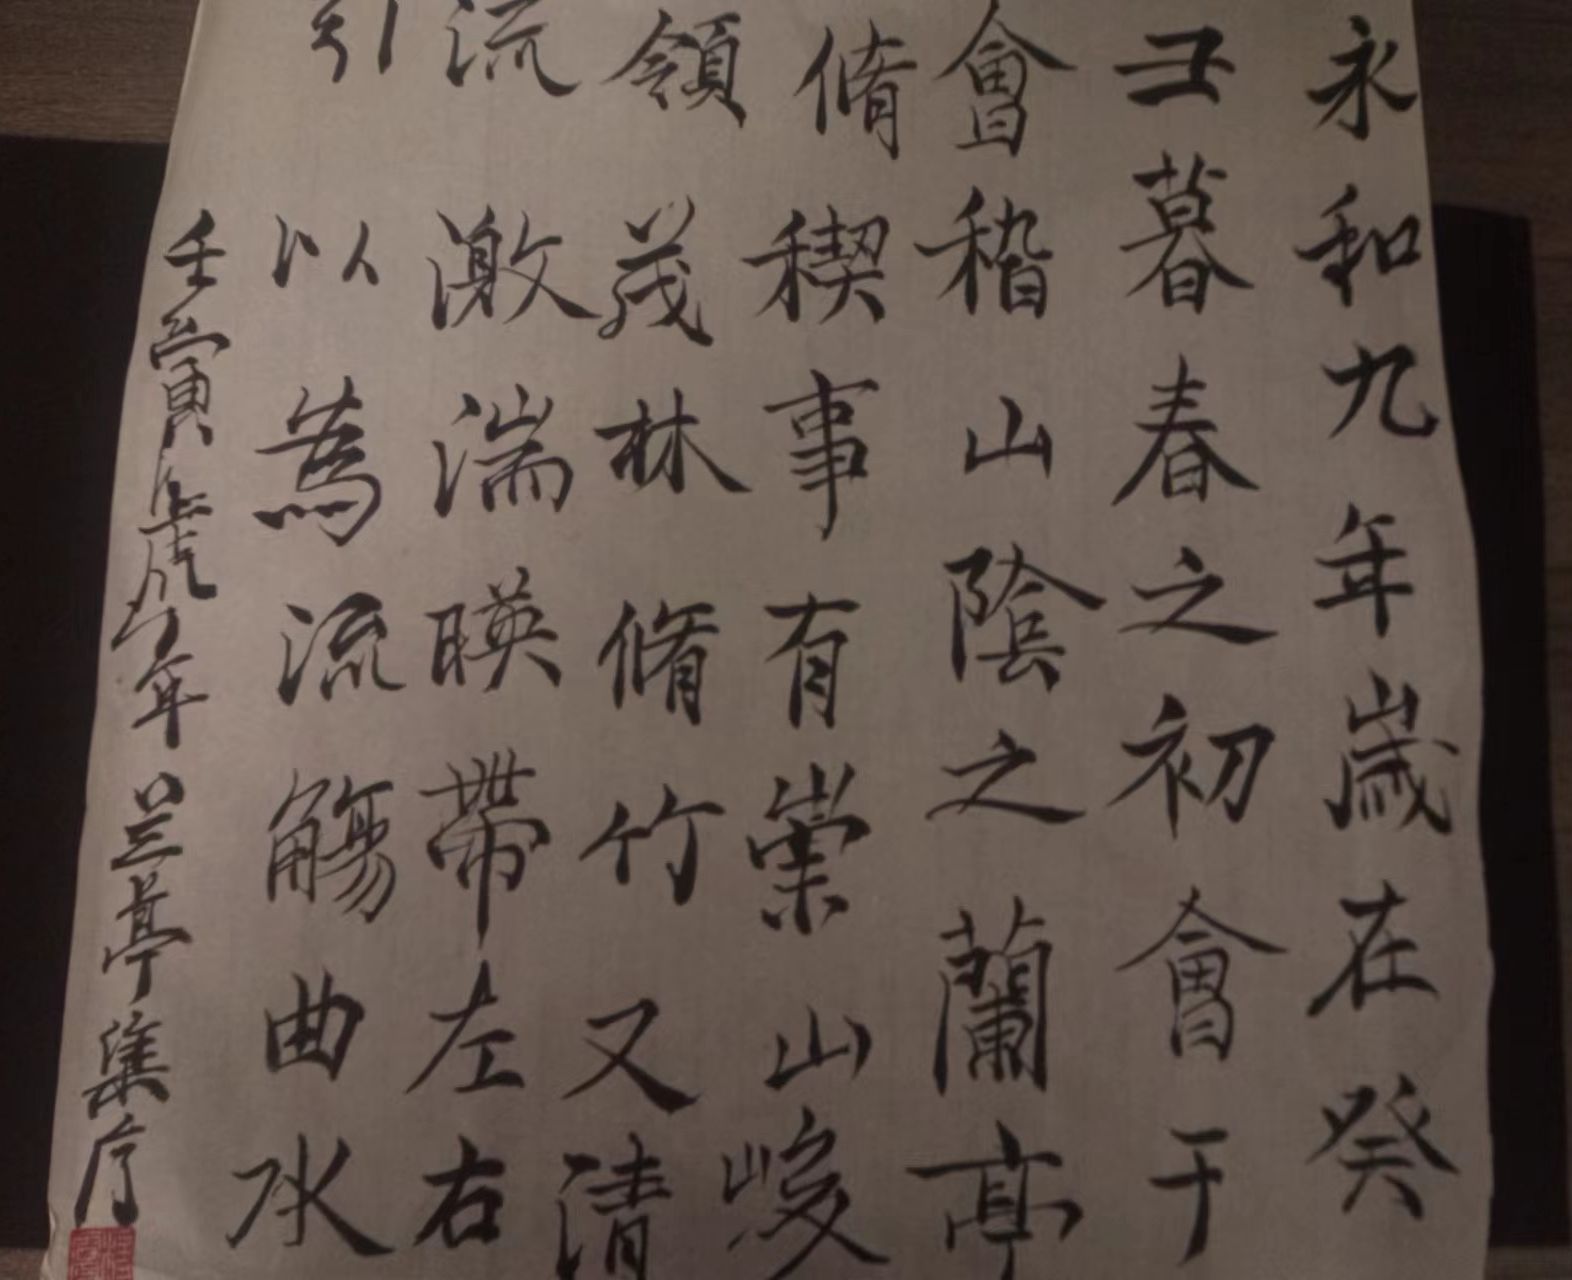 永和九年歲在癸
丑暮春之初會于
會稽山陰之蘭亭
脩稧事有崇山峻
領茂林脩竹又清
流激湍暎帶左右
引以為流觴曲水
壬寅虎年兰亭集序